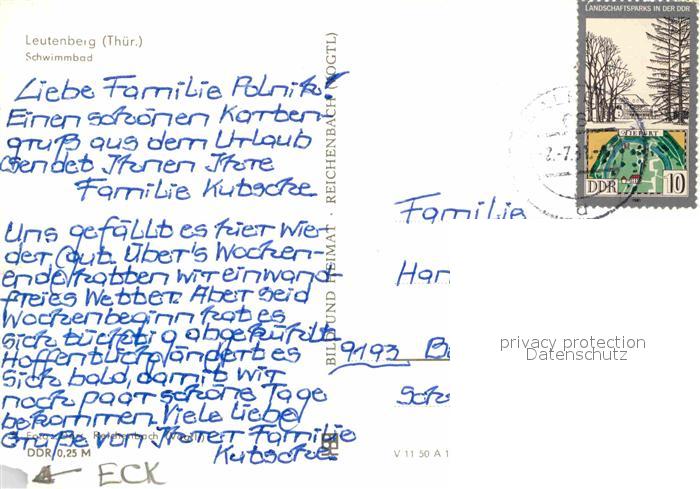 Leutenberg (Thür.)
Schwimmbad
Liebe Familie Polnik!
Einen schönen Karten-
gruß aus dem Urlaub
sendet Ihnen Ihre
Familie Kutsche
Uns gefällt es hier wie-
der gut. Über's Wochen-
ende hatten wir einwand-
freies Wetter. Aber seid
Wochenbeginn hat es
sich tüchtig abgekühlt.
Hoffentlich ändert es
sich bald, damit wir
noch paar schöne Tage
bekommen. Viele liebe
Grüße von Ihrer Familie
Kutsche.
Reichenbach (Vogtl)
DDR 0,25 M
ECK
BILD UND HEIMAT · REICHENBACH (VOGTL)
V 11 50 A 1
LANDSCHAFTSPARKS IN DER DDR
TIEFURT
DDR 10
1981
Familie
Han
9193 B
Sch
privacy protection
Datenschutz